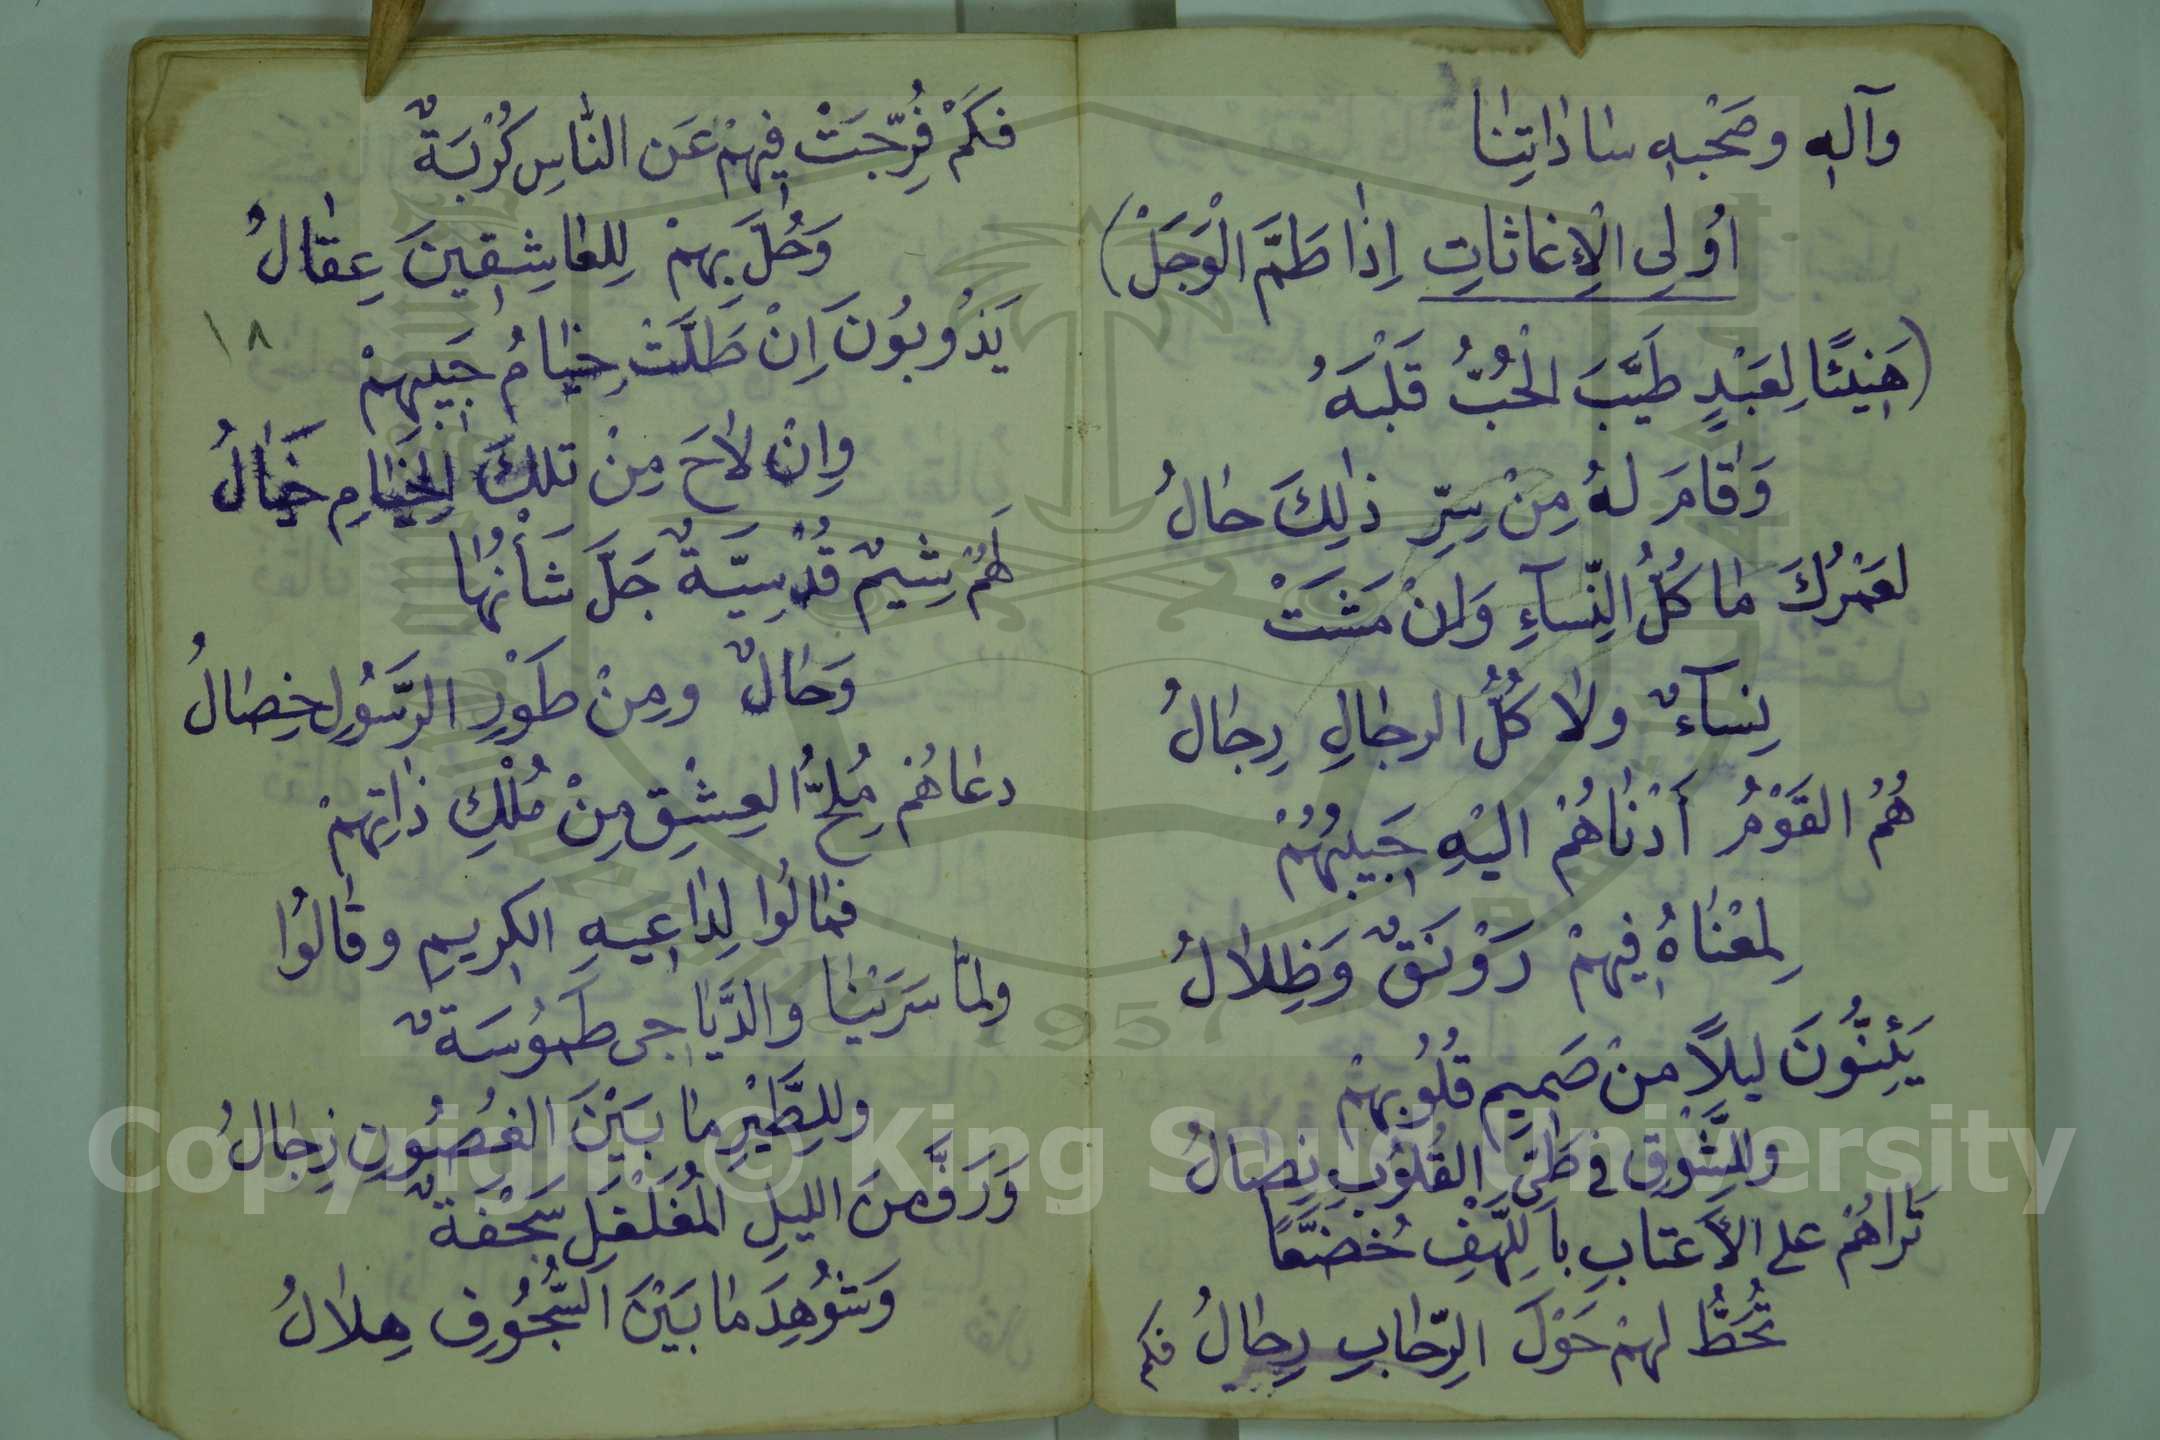 وَآلِهِ وصَحْبِهِ سَادَاتِنَا
أُولِى الْاِغَاثَاتِ اِذَا طَمَّ الْوَجَلْ)
(هَنِيئًا لِعَبْدٍ طَيَّبَ الْحُبُّ قَلْبَهُ
وَقَامَ لهُ مِنْ سِرِّ ذٰلِكَ حَالُ
لعَمْرُكَ مَا كُلُّ النِّسآءِ وَانْ مَشَتْ
نِسآءٌ ولَا كُلُّ الرجَالِ رِجَالُ
هُمُ القَوْمُ أَدْنَاهُمْ اليْهِ حَبِيبُهُمْ
لِمَعْنَاهُ فِيهِمْ رَوْنَقٌ وَظِلَالُ
يَئِنُّونَ ليلًا منْ صَميمِ قُلُوبِهِمْ
وللشَّوْقِ فى طَىِّ القُلوُبِ نِصَالُ
تَرَاهُمْ على الأَعتابِ باَللَّهْفِ خُضَّعًا
تُحَطُّ لهمْ حَوْلَ الرِّحَابِ رِحَالُ
فكم
فكَمْ فُرِّجَتْ فِيهِمْ عَن النَّاسِ كُرْبَةٌ
وَحُلَّ بِهِمْ لِلعَاشِقِينَ عِقَالُ
١٨
يَذُوبُونَ اِنْ طَلَّتْ خِيَامُ حَبِيبِهِمْ
وِانْ لَاحَ مِنْ تلكَ الخِيَامِ خَيَالُ
لَهُمْ شِيَمٌ قُدْسِيَّةٌ جَلَّ شَأْنُهَا
وَحَالٌ ومِنْ طَوْرِ الرَّسَوُلِ خِصَالُ
دعَاهُمْ مُلِحُّ العِشْقِ مِنْ مُلْكِ ذَاتِهِمْ
فمَالُوا لِدَاعِيهِ الكرِيمِ وقَالُوا
ولمَّا سَرَيْنَا والدَّيَاجى طَمُوسَةٌ
وللِطَّيْرِ مَا بَيْنَ الغُصُونِ زِجَالُ
وَرَفَّ منَ الليلِ المُغَلْغَلِ سَجْفَةٌ
وَشوُهِدَ مَا بَيْنَ السُّجُوفِ هِلَالُ
Copyright © King Saud University
1957